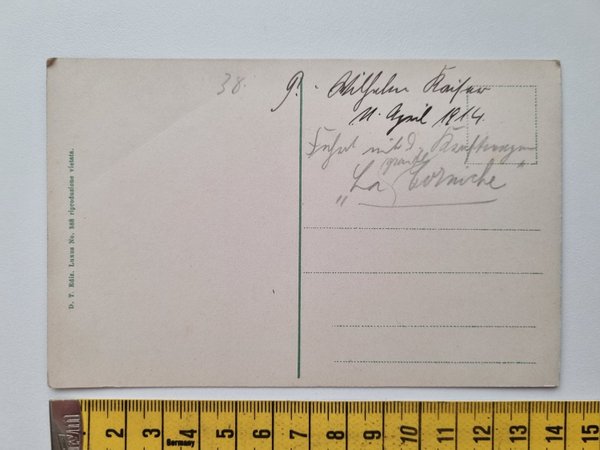 38.
P. Wilhelm Kaiser
11. April 1914.
Fahrt mit d. Kraftwagen
grande
"La Corniche"
D. T. Ediz. Luxus No. 388 riproduzione vietata.
2 3 4 5 6 7 8 9 10 11 12 13 14 15
Germany